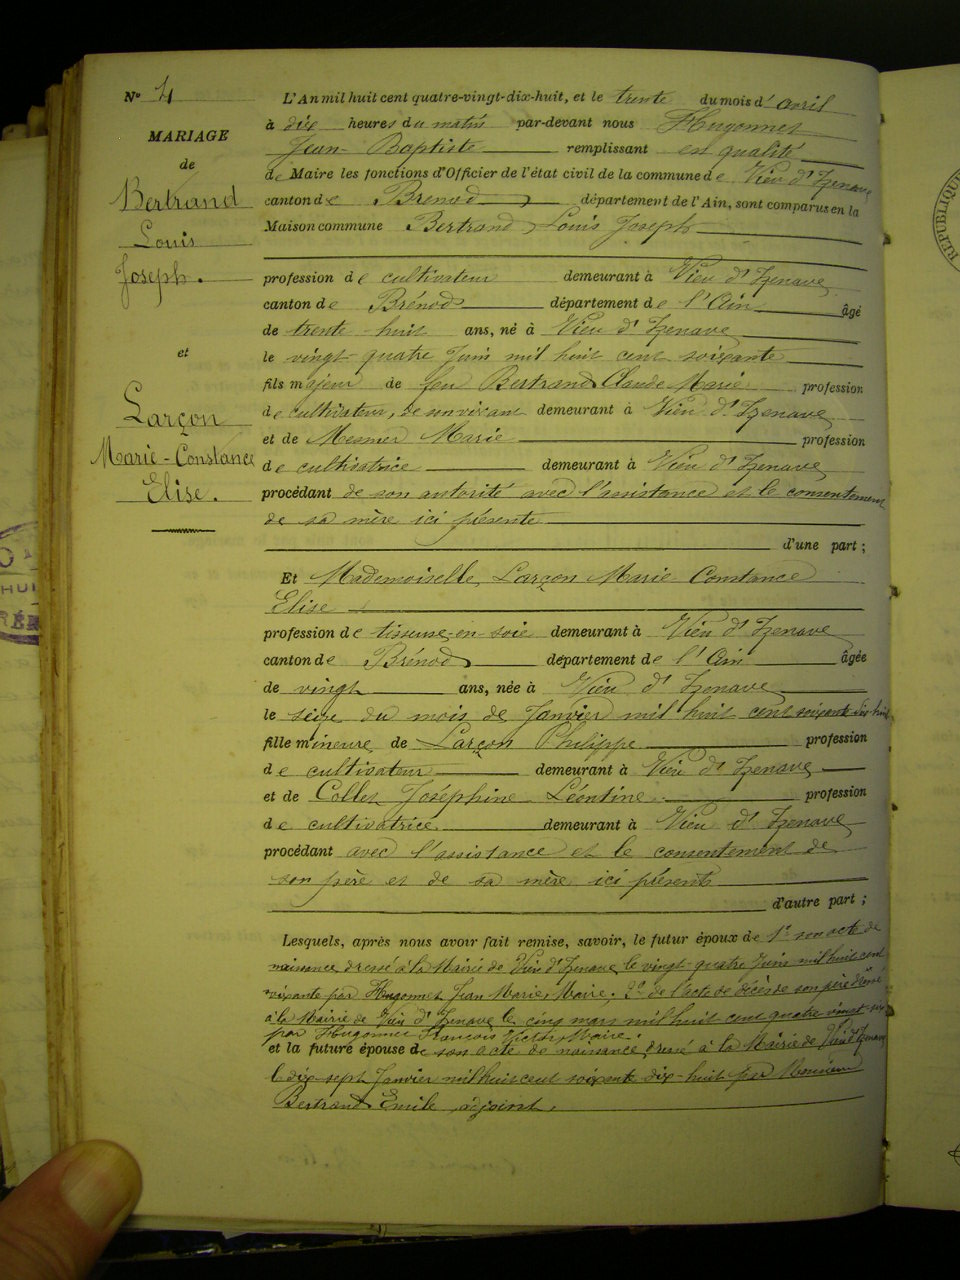 N° 4
MARIAGE
de
Bertrand
Louis
Joseph.
et
Larçon
Marie-Constance
Elise.
L'An mil huit cent quatre-vingt-dix-huit, et le trente du mois d'avril
à dix heures du matin par-devant nous Hugonnet
Jean-Baptiste remplissant en qualité
de Maire les fonctions d'Officier de l'état civil de la commune de Vieu d'Izenave
canton de Brénod, département de l'Ain, sont comparus en la
Maison commune Bertrand, Louis Joseph
profession de cultivateur demeurant à Vieu d'Izenave
canton de Brénod département de l'Ain âgé
de trente-huit ans, né à Vieu d'Izenave
le vingt-quatre Juin mil huit cent soixante
fils majeur de feu Bertrand Claude Marie profession
de cultivateur, de son vivant demeurant à Vieu d'Izenave
et de Mesmer Marie profession
de cultivatrice demeurant à Vieu d'Izenave
procédant de son autorité avec l'assistance et le consentement
de sa mère ici présente
d'une part ;
Et Mademoiselle, Larçon Marie Constance
Elise
profession de tisseuse-en-soie demeurant à Vieu d'Izenave
canton de Brénod département de l'Ain âgée
de vingt ans, née à Vieu d'Izenave
le seize du mois de Janvier mil huit cent soixante dix huit
fille mineure, de Larçon Philippe profession
de cultivateur demeurant à Vieu d'Izenave
et de Collet Joséphine Léontine profession
de cultivatrice demeurant à Vieu d'Izenave
procédant avec l'assistance et le consentement de
son père et de sa mère ici présents
d'autre part ;
Lesquels, après nous avoir fait remise, savoir, le futur époux de 1° son acte de
naissance dressé à la Mairie de Vieu d'Izenave le vingt-quatre Juin mil huit cent
soixante par Hugonnet Jean Marie, Maire. 2° de l'acte de décès de son père dressé
à la Mairie de Vieu d'Izenave le cinq mars mil huit cent quatre vingt-six
par Hugonnet François Victor, Maire.
et la future épouse de son acte de naissance, dressé à la Mairie de Vieu d'Izenave
le dix-sept Janvier mil huit cent soixante dix-huit par Monsieur
Bertrand Emile adjoint.
RÉPUBLIQUE